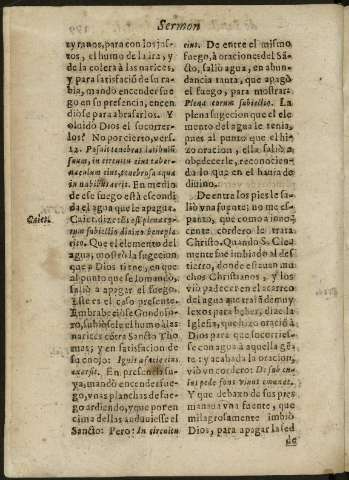 Sermon
tyranos, para con los jus-
tos, el humo de la ira, y de
la colera à las narices,
y para satisfació de su ra-
bia, mandò encender fue
go en su presencia, encen
diose para abrasarlos. Y
oluidò Dios el socorrer-
los? No por cierto, vers.
12. Posuit tenebras latibulum
suum, in circuitu eius taber-
naculum eius, tenebrosa aqua
in nubibus aeris. En medio
de ese fuego està escondi
da el agua que le apague.
Caiet. dize: id est plena eo-
rum subiectio diuino benepla
cito. Que el elemento del
agua, mostrò la sugecion
que a Dios tiene, en que
al punto que se lo mando,
saliò a apagar el fuego.
Este es el caso presente.
Embrabeciòse Gundofo-
ro, subiosele el humo à las
narices cõtra Sancto Tho
mas; y en satisfacion de
su enojo: Ignis a facie eius
exarsit. En presencia su-
ya, mandò encender fue-
go, vnas planchas de fue-
go ardiendo, y que por en
cima dellas anduuiesse el
Sancto: Pero: In circuitu
Caiet.
eius. De entre el mismo
fuego, à oraciones del Sã-
cto, saliò agua, en abun-
dancia tanta, que apagò
el fuego, para mostrar:
Plena eorum subiectio. La
plena sugecion que el ele-
mento del agua le tenia,
pues al punto que el hi-
zo oracion, ella saliò a
obedecerle, reconocien-
do lo que en el hauia de
diuino.
De entre los pies le sa-
liò una fuente; no me es-
panto, que como a inno-
cente cordero le trata
Christo. Quando S. Cle-
mente fue imbiado al des
tierro, donde estauan mu
chos Christianos, y los
viò padecer en el acarreo
del agua que traiã de muy
lexos para beber, dize la
Iglesia, que hizo oraciò à
Dios para que socorries-
se con agua à aquella gẽ-
te: y acabada la oracion,
viò vn cordero: De sub cu-
ius pede fons viuus emanat.
Y que debaxo de sus pies
manaua vna fuente, que
milagrosamente imbiò
Dios, para apagar la sed
de